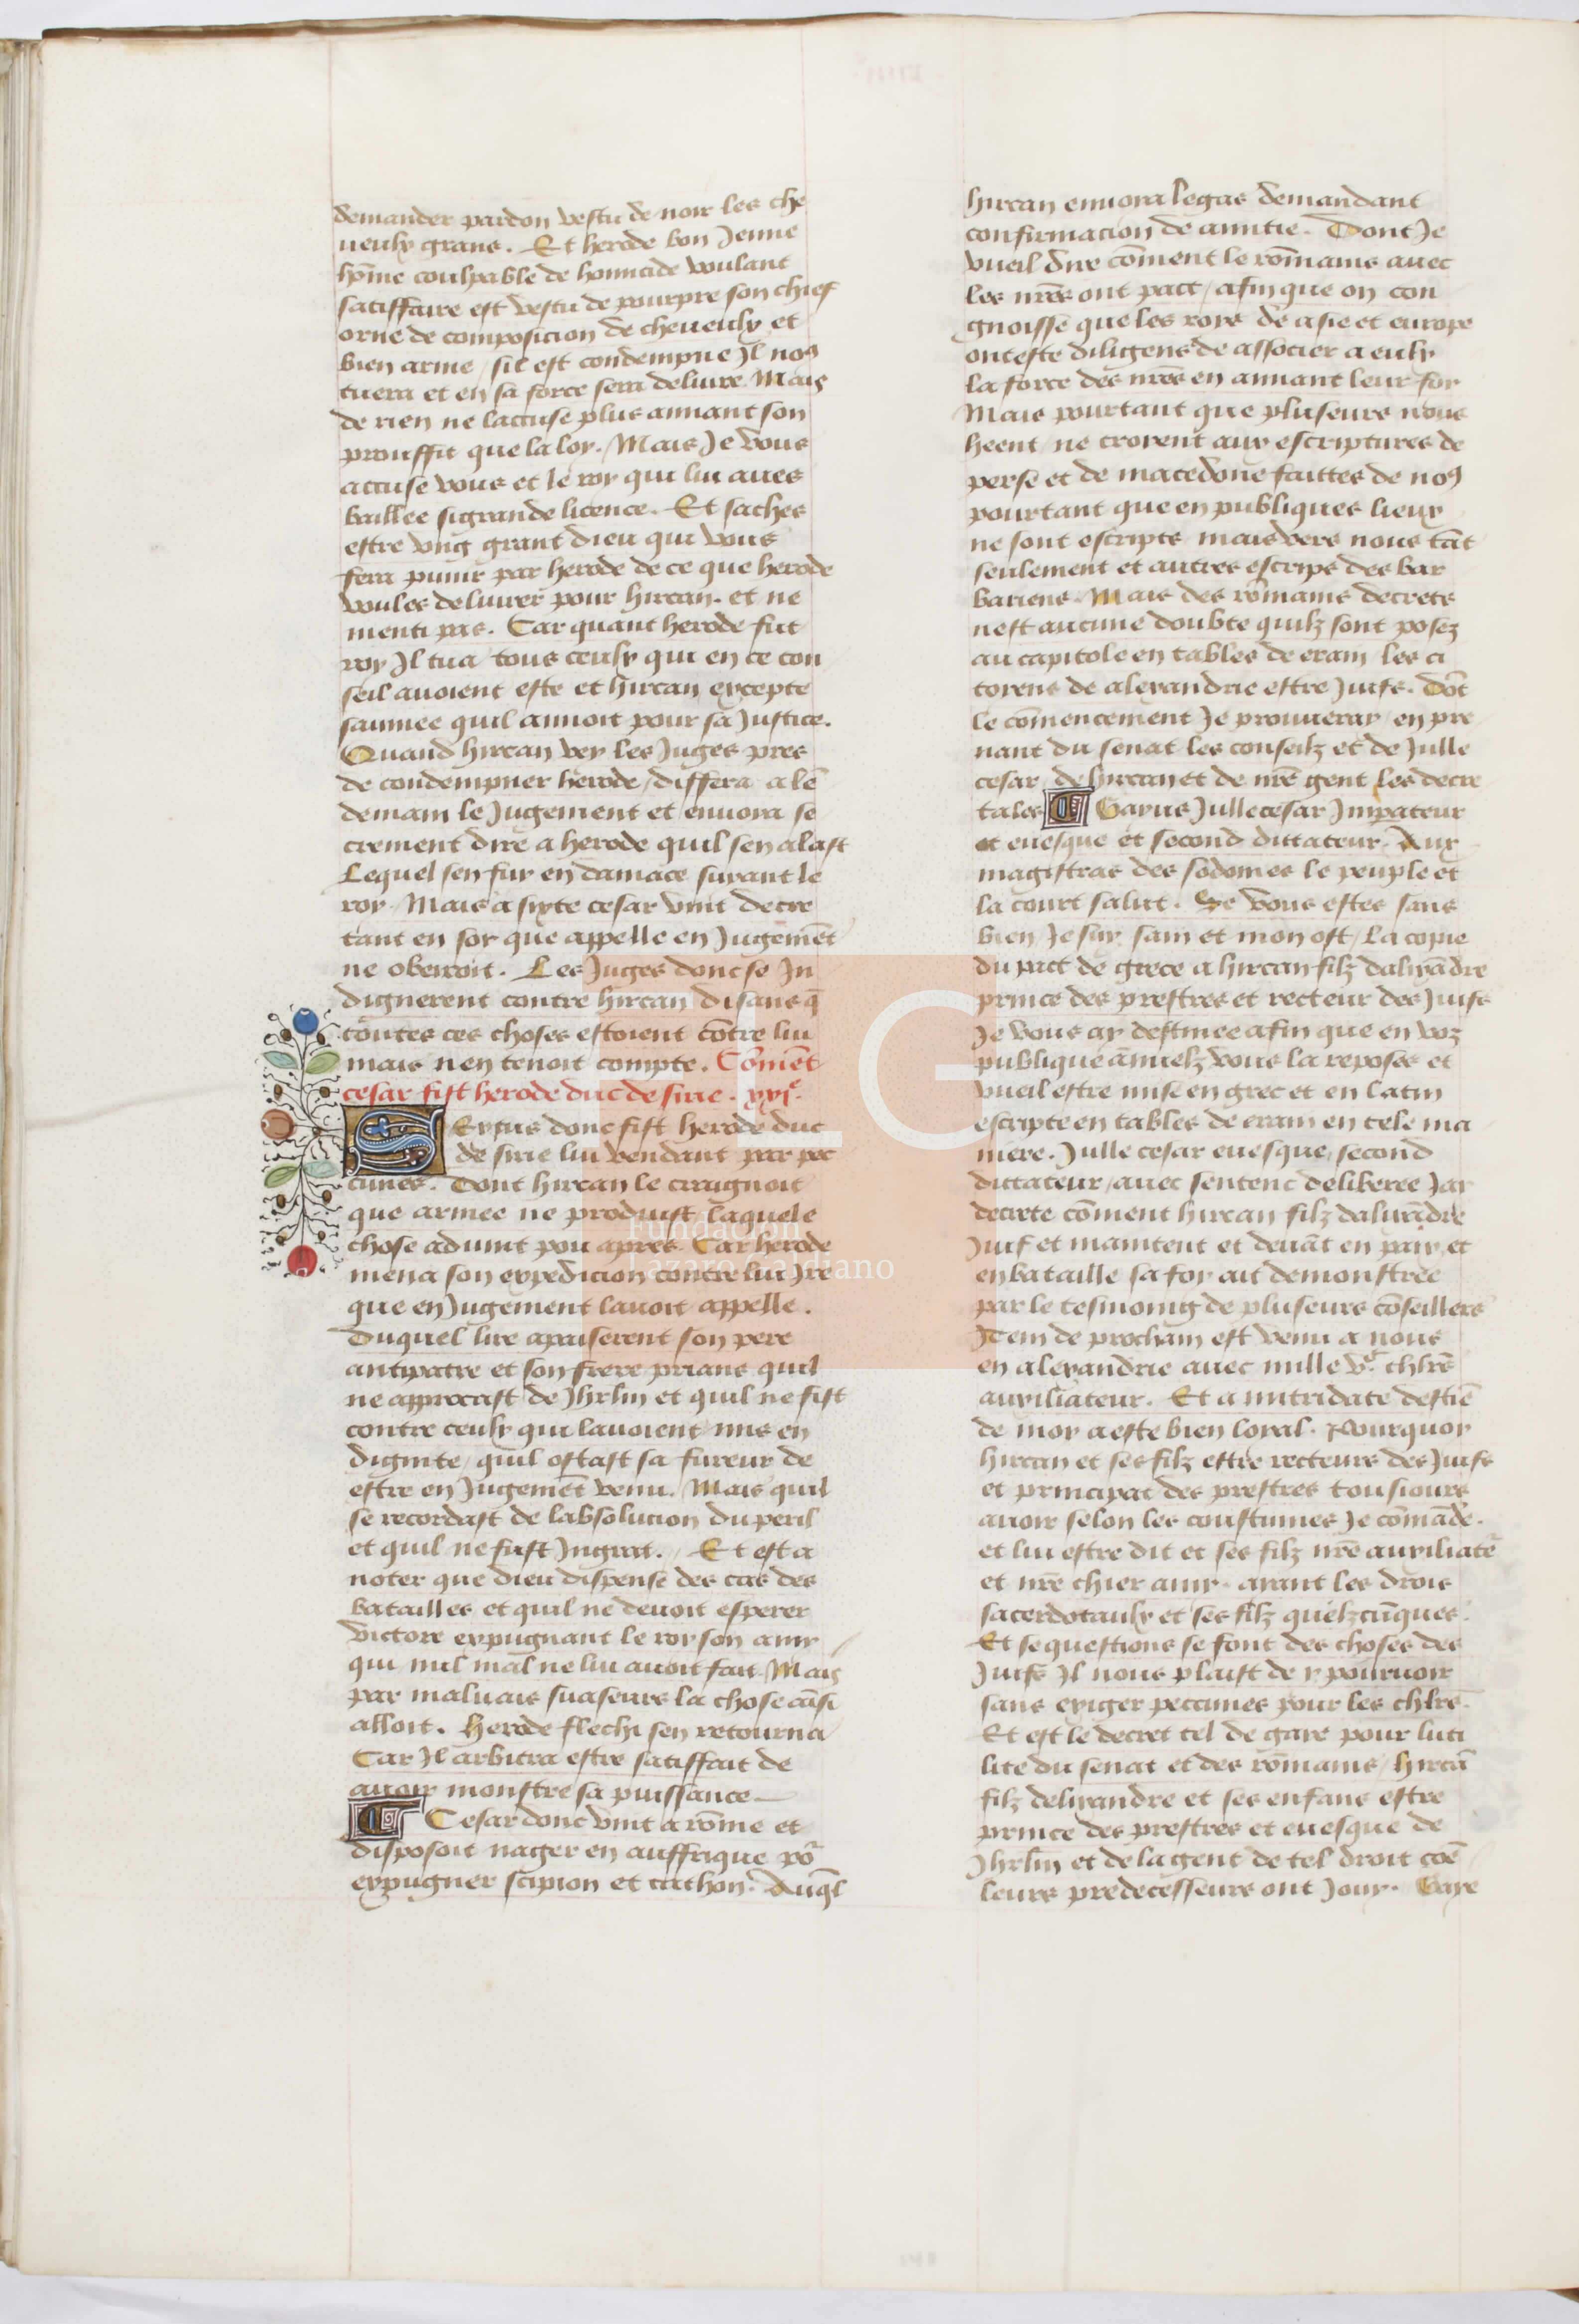 demander pardon vestu de noir les che
ueulx grans. Et herode bon Jenne
hōme coulpable de homicide voulant
satiffaire est vestu de pourpre son chief
orne de composicion de cheueulx et
bien arme / sil est condempne Jl noꝰ
tuera et en sa force sera deliure. Mais
de rien ne laccuse plus amant son
prouffit que la loy. Mais Je vous
accuse vous et le roy qui lui aues
baillee si grande licence. Et saches
estre vng grant dieu qui vous
fera punir par herode de ce que herode
voules deliurer pour hircan. et ne
menti pas. Car quant herode fut
roy Jl tua tous ceulx qui en ce con
seil auoient este et hircan excepte
saumee quil amoit pour sa Justice.
Quand hircan vey les Juges pres
de condempner herode / differa a lē
demain le Jugement et enuoia se
crement dire a herode quil sen alast
Lequel sen fui en damace suiant le
roy. Mais a sixte cesar vint decre
tant en soy que appelle en Jugemēt
ne obeiroit. Les Juges donc se Jn
dignerent contre hircan disans q̄
toutes ces choses estoient cōtre lui
mais nen tenoit compte. Cōmēt
cesar fist herode duc de sirie. xxjᵉ.
Sextus donc fist herode duc
de sirie lui vendant par pec
cunes. Dont hircan le craignoit
que armee ne produist laquele
chose aduint pou apres. Car herode
mena son expedicion contre lui Jre
que en Jugement lauoit appelle.
Duquel lire apaiserent son pere
antipatre et son frere prians quil
ne approcast de Jhrlm et quil ne fist
contre ceulx qui lauoient mis en
dignite / quil ostast sa fureur de
estre en Jugemēt venu. Mais quil
se recordast de labsolucion du peril
et quil ne fust Jngrat. Et est a
noter que dieu dispense des cas des
batailles et quil ne deuoit esperer
victore expugnant le roy son amy
qui nul mal ne lui auoit fait. Mais
par maluais suaseurs la chose aīsi
alloit. Herode flechi sen retourna
Car Jl arbitra estre satiffait de
auoir monstre sa puissance
Cesar donc vint a rōme et
disposoit nager en auffrique po᷑
expugner scipion et cathon. Auq̄l
hircan enuoia legas demandant
confirmacion de amitie. Dont Je
vueil dire cōment le rōmains auec
les nr̄es ont pact / afin que on con
gnoisse que les roys de asie et europe
ont este diligens de associer a eulx
la force des nr̄es en amant leur foy
Mais pourtant que pluseurs nous
heent / ne croyent aux escriptures de
perse et de macedone faittes de noꝰ
pourtant que en publiques lieux
ne sont escripts mais vers nous tāt
seulement et autres escrips des bar
bariens. Mais des rōmains decrets
nest aucune doubte quilz sont posez
au capitole en tables de eram les ci
toyens de alexandrie estre Juifs. Dōt
le cōmencement Je prouueray / en pre
nant du senat les conseilz et de Julle
cesar / de hircan et de nr̄e gent les decre
tales Gayus Julle cesar Jmpateur
et euesque et second dittateur. Aux
magistras des sodomes le peuple et
la court salut. Se vous estes sans
bien Je suy sain et mon ost / La copie
du pact de grece a hircan filz dalixādre
prince des prestres et recteur des Juifs
Je vous ay destinee afin que en voz
publique ānuelz vous la reposes et
vueil estre mise en grec et en latin
escripte en tables de eram en tele ma
niere. Julle cesar euesque, second
dittateur / auec sentenc deliberee Jay
decrete cōment hircan filz dalixādre
Juif et maintent et deuāt en paix et
en bataille sa foy ait demonstree
par le tesmoing de pluseurs cōseilliers
Jtem de procham est venu a nous
en alexandrie auec mille vᶜ chlr̄s
auxiliateur. Et a mitridate destīe
de moy a este bien loyal. Pourquoy
hircan et ses filz estre recteurs des Juifs
et principat des prestres tousiours
auoir selon les coustumes Je cōmāde.
et lui estre dit et ses filz nr̄e auxiliatē
et nr̄e chier amy. ayant les drois
sacerdotaulx et ses filz quelzcūques.
Et se questions se font des choses des
Juifs Jl nous plaist de y pouruoir
sans exiger peccunes pour les chlrs̄.
Et est le decret tel de gaye pour luti
lite du senat et des rōmains / hircā
filz delixandre et ses enfans estre
prince des prestres et euesque de
Jhrlm et de la gent de tel droit cōe
leurs predecesseurs ont Jouy. Gaye
FLG
Fundación
Lázaro Galdiano